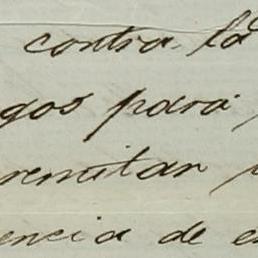 contra la
gos para
remitan
encia de